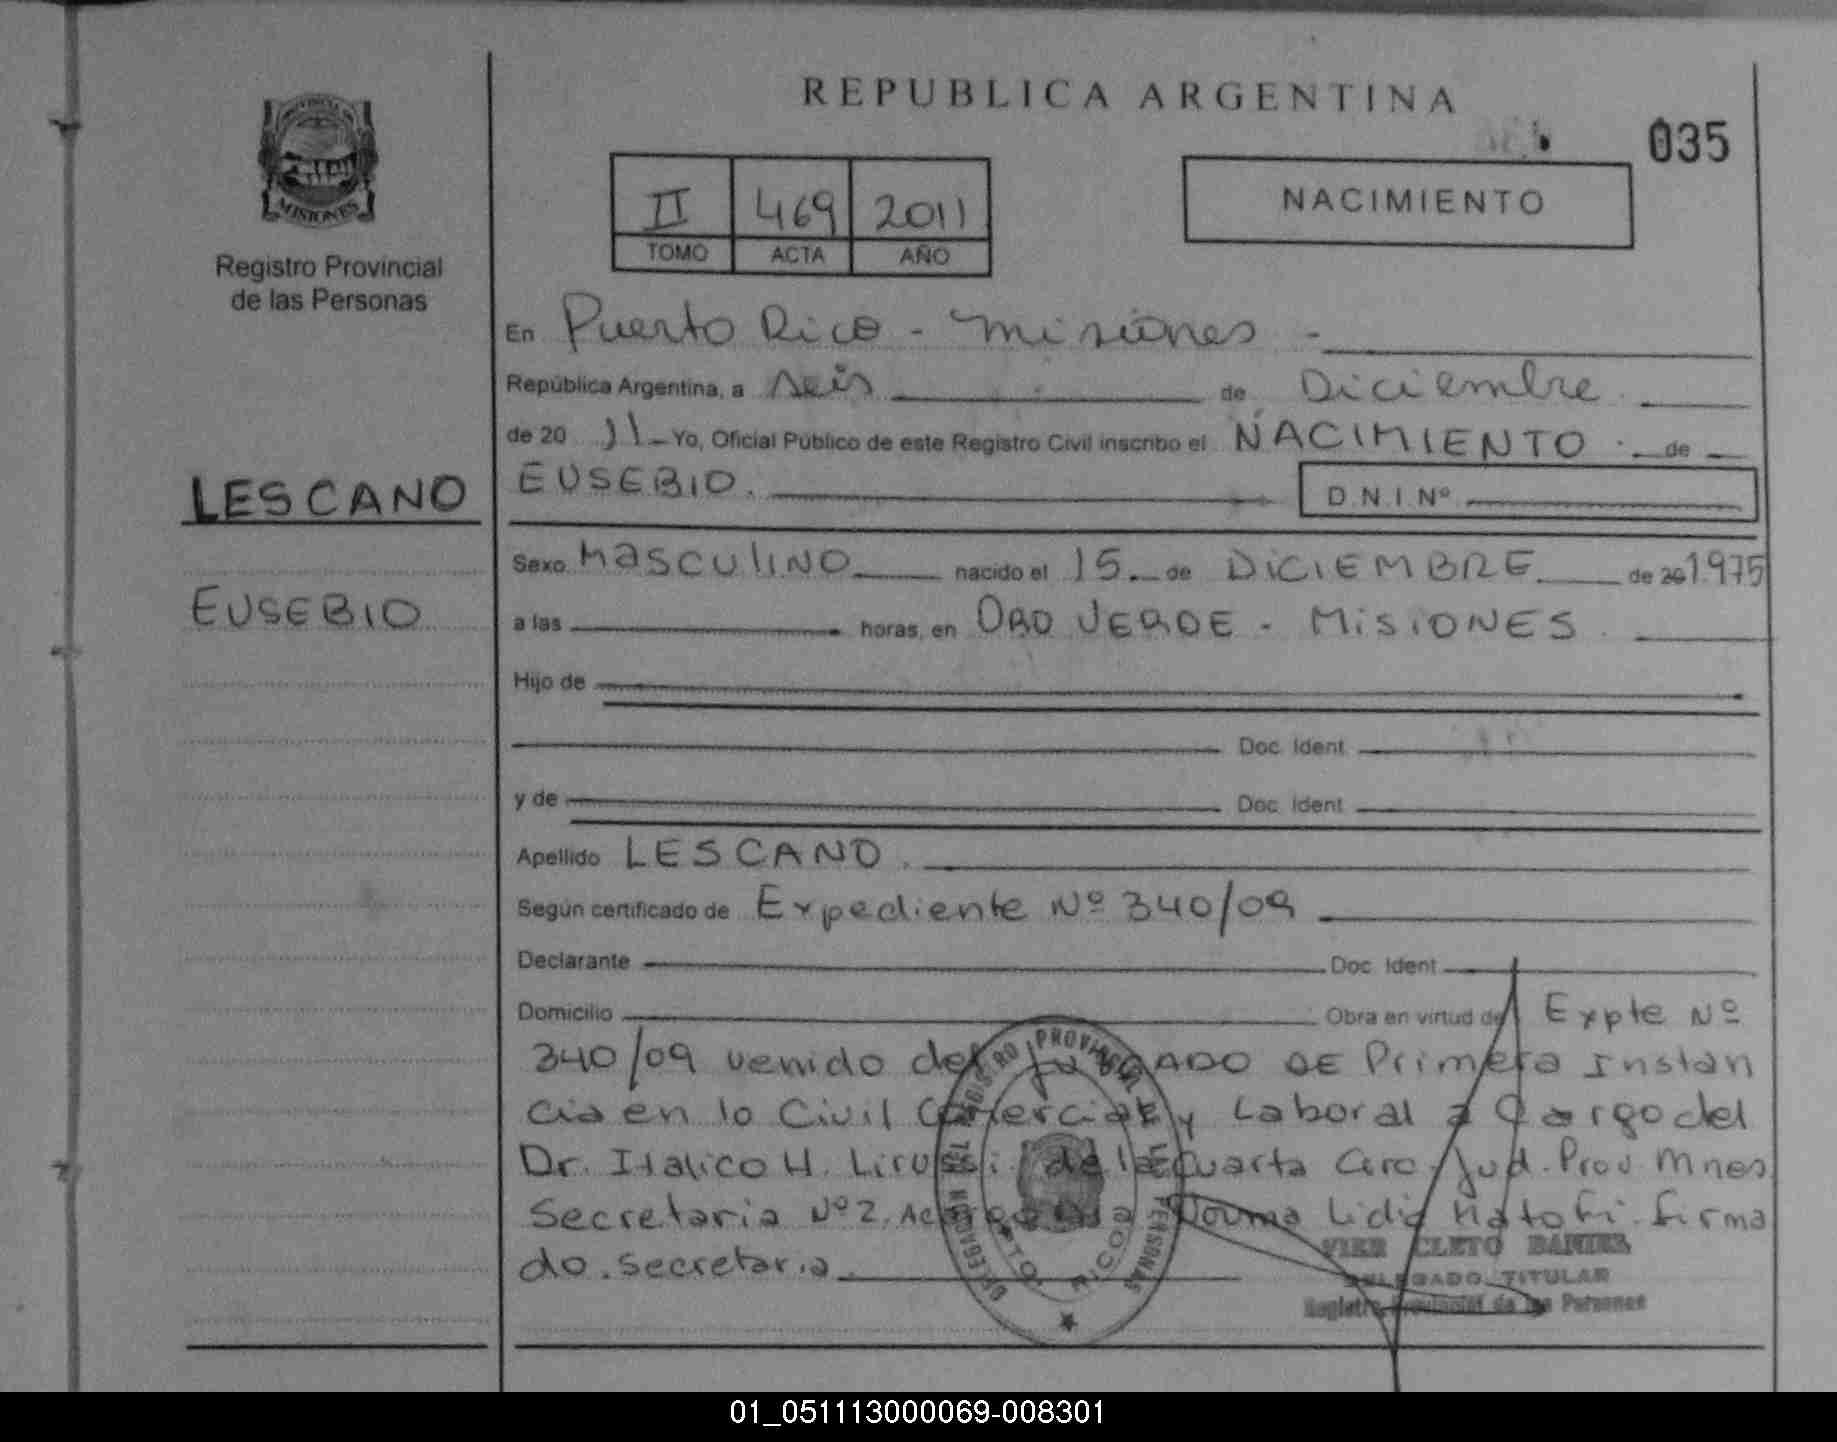 REPUBLICA ARGENTINA
035
PROVINCIA
MISIONES
Registro Provincial
de las Personas
II 469 2011
TOMO ACTA AÑO
NACIMIENTO
En Puerto Rico - Misiones -
República Argentina, a seis de Diciembre
de 20 11 - Yo, Oficial Público de este Registro Civil inscribo el NACIMIENTO de
LESCANO
EUSEBIO. D.N.I.Nº
Sexo MASCULINO nacido el 15 de DICIEMBRE de 20 1975
EUSEBIO
a las horas, en ORO VERDE - MISIONES
Hijo de
Doc. Ident.
y de Doc. Ident.
Apellido LESCANO.
Según certificado de Expediente Nº 340/09
Declarante Doc. Ident.
Domicilio Obra en virtud de Expte Nº
340/09 venido del JUZGADO DE Primera Instan
cia en lo Civil Comercial y Laboral a Cargo del
Dr. Italico H. de la Cuarta Circ. Jud. Prov. Mnes
Secretaria Nº 2. Lidia firma
do. Secretaria.
DELEGACION REGISTRO PROVINCIAL DE LAS PERSONAS
PTO. RICO
CLETO DANIEL
DELEGADO TITULAR
Registro Provincial de las Personas
01_051113000069-008301